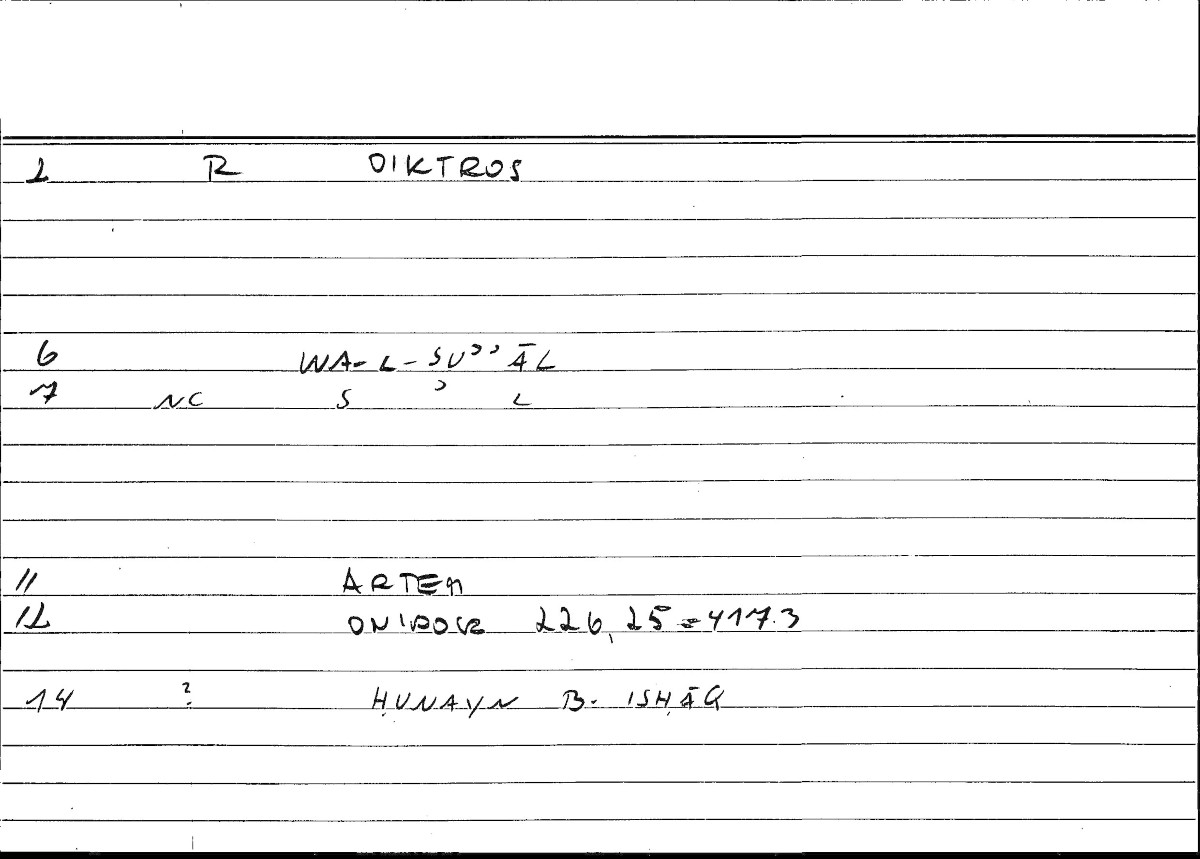 1 R OIKTROS
6 WA-L-SUʾʾĀL
7 NC S ʾ L
11 ARTEM
12 ONIROCR 226,25 = 417.3
14 ? ḤUNAYN B. ISḤĀQ